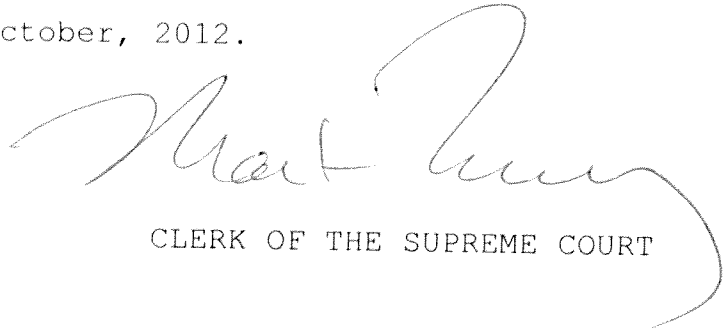 ctober, 2012.
CLERK OF THE SUPREME COURT